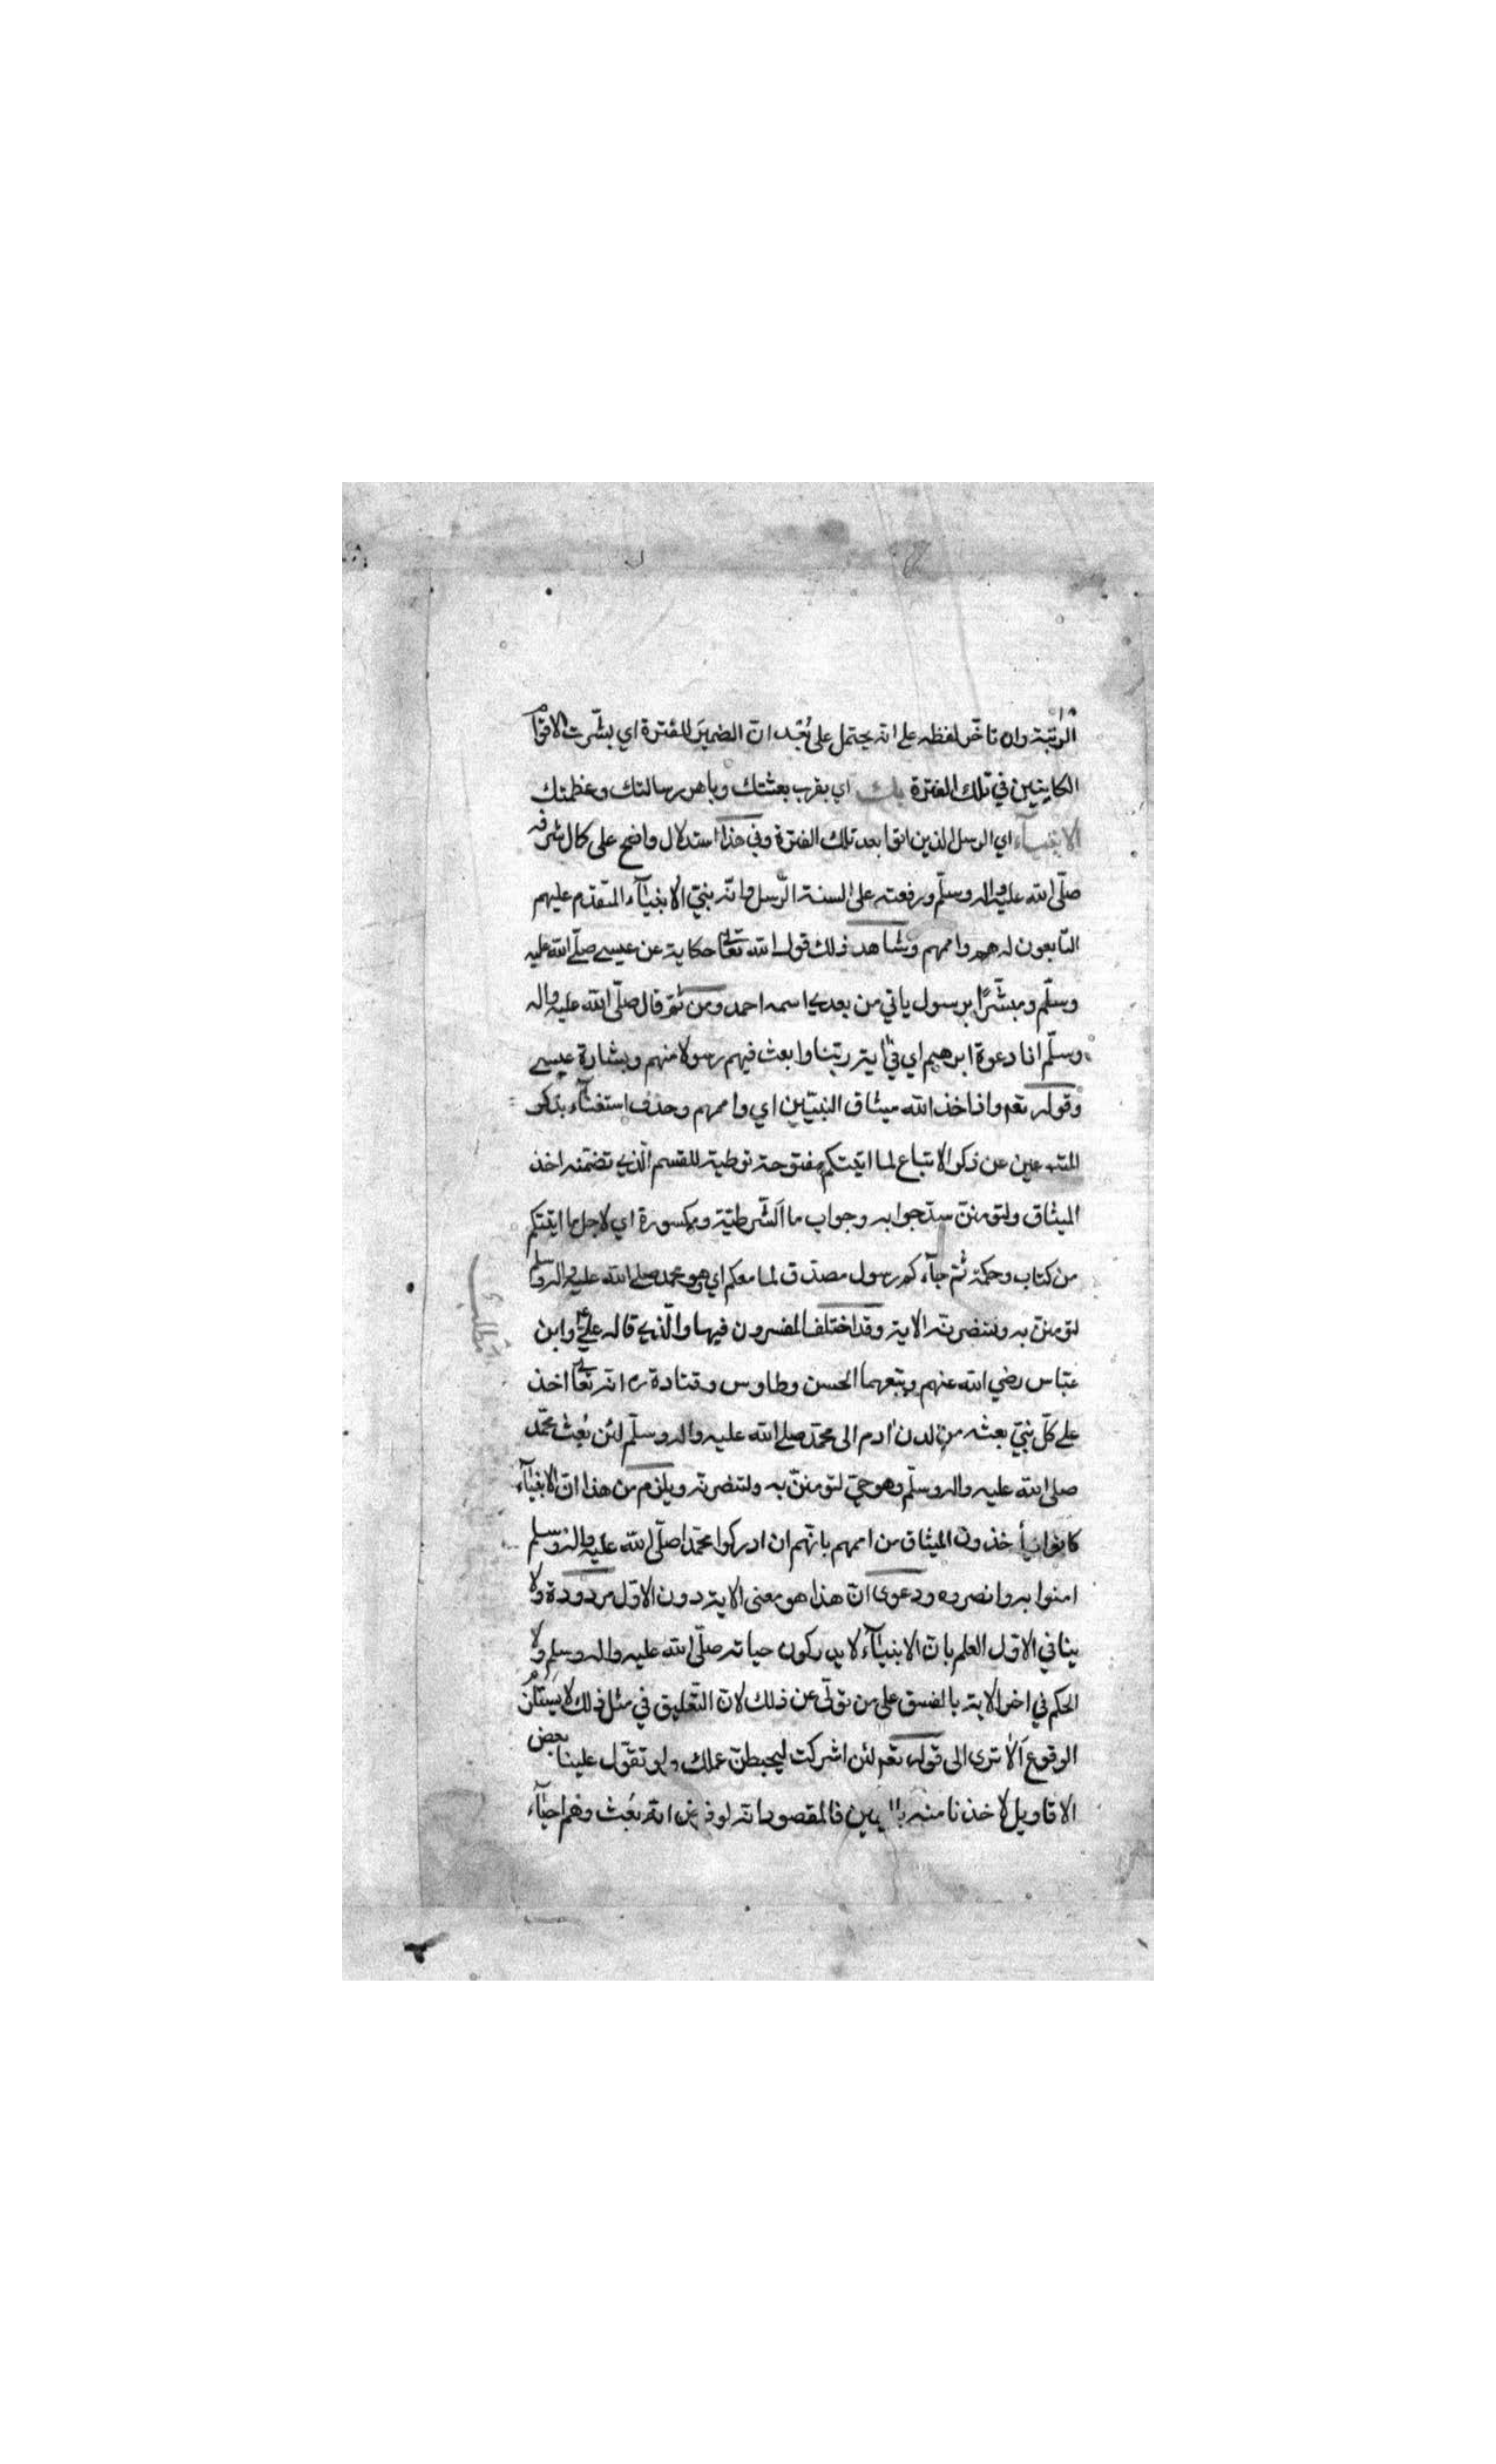 الرتبة وان تاخّر لفظه على انه يحتمل على بُعْد ان الضمير للفترة اي بشّرت الاقوام
الكاينين في تلك الفترة بك اي بقرب بعثتك وباهر رسالتك وعظمتك
الانبياء اي الرسل الذين اتوا بعد تلك الفترة وفي هذا استدلال واضح على كمال شرفه
صلّى الله عليه واله وسلّم ورفعته على السنة الرّسل وانّه نبيّ الانبيآء المتقدم عليهم
التابعون له هم واممهم وشاهد ذلك قول الله تعالى حكاية عن عيسى صلّى الله عليه
وسلّم ومبشّرًا برسول ياتي من بعدي اسمه احمد ومن ثمّ قال صلّى الله عليه واله
وسلّم انا دعوة ابرهيم اي في اية ربّنا وابعث فيهم رسولا منهم وبشارة عيسى
وقوله تعم واذ اخذ الله ميثاق النبيّين اي واممهم وحذف استغنآء بذكر
المتبوعين عن ذكر الاتباع لما اتيتكم مفتوحة توطية للقسم الّذي تضمّنه اخذ
الميثاق ولتومننّ سدّ جوابه وجواب ما الشّرطيّة ومكسورة اي لاجل ما اتيتكم
من كتاب وحكمة ثمّ جآءكم رسول مصدّق لما معكم اي وهو محمد صلى الله عليه واله وسلم
لتومننّ به ولتنصرنّه الاية وقد اختلف المفسرون فيها والّذي قاله عليّ وابن
عبّاس رضي الله عنهم وتبعهما الحسن وطاوس وقتادة انه تعالى اخذ
على كلّ نبيّ بعثه من لدن ادم الى محمّد صلى الله عليه واله وسلّم لئن بُعِث محمّد
صلى الله عليه واله وسلّم وهو حيّ لتومننّ به ولتنصرنّه ويلزم من هذا انّ الانبيآء
كانوا يأخذون الميثاق من اممهم بانّهم ان ادركوا محمّدا صلّى الله عليه واله وسلم
امنوا به وانصروه ودعوى انّ هذا هو معنى الاية دون الاوّل مردودة ولا
ينافي الاوّل العلم بانّ الانبيآء لا يدركون حياته صلّى الله عليه واله وسلم ولا
الحكم في اخر الاية بالفسق على من تولّى عن ذلك لانّ التّعليق في مثل ذلك لا يستلزم
الوقوع ألا ترى الى قوله تعم لئن اشركت ليحبطنّ عملك ولو تقوّل علينا بعض
الاقاويل لاخذنا منه باليمين فالمقصود انه لو فرض انه بُعِث وهم احيآء